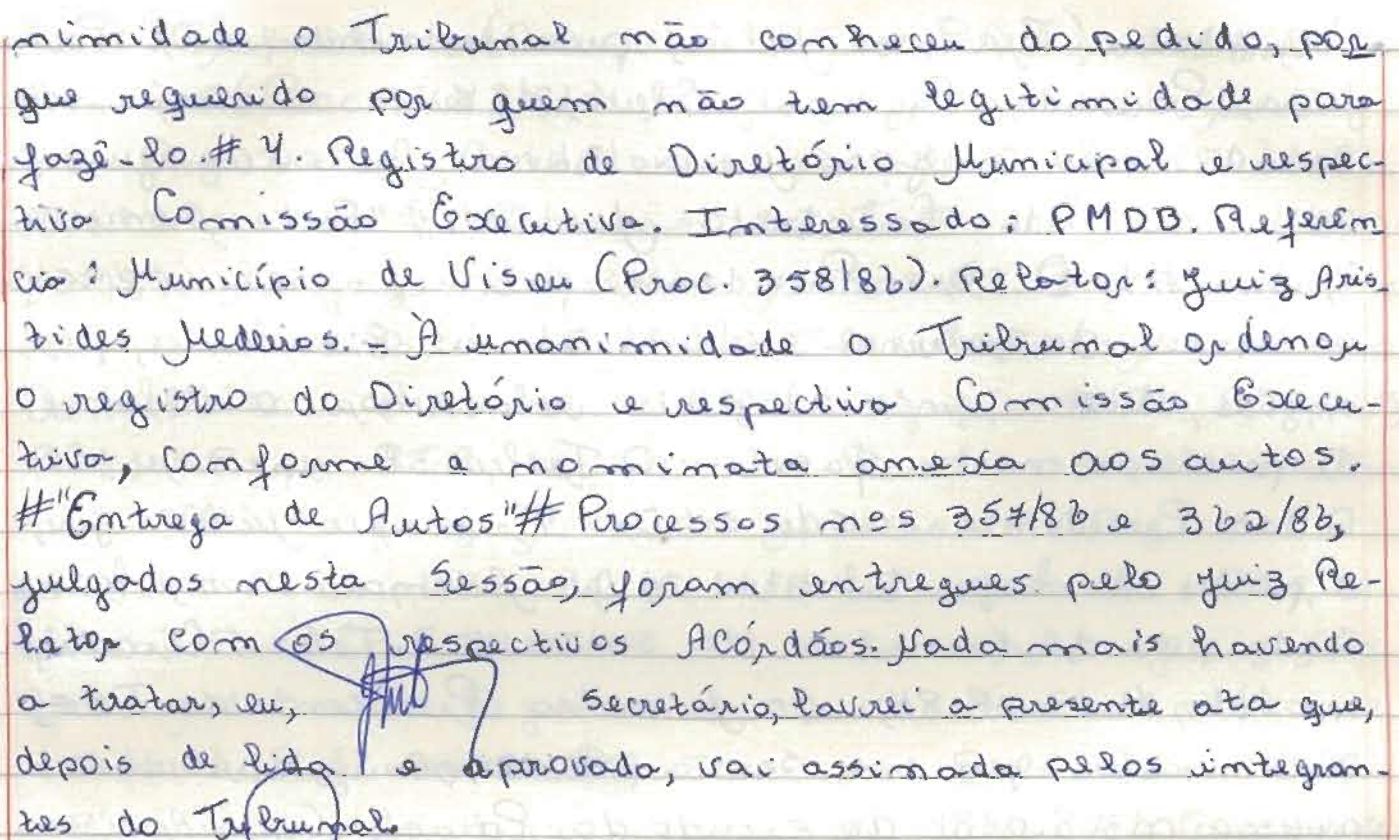 nimidade o Tribunal não conheceu do pedido, por
que requerido por quem não tem legitimidade para
fazê-lo. # 4. Registro de Diretório Municipal e respec-
tiva Comissão Executiva. Interessado: PMDB. Referên
cia: Município de Viseu (Proc. 358/86). Relator: Juiz Aris
tides Medeiros. = À unanimidade o Tribunal ordenou
o registro do Diretório e respectiva Comissão Execu-
tiva, conforme a nominata anexa aos autos.
# "Entrega de Autos" # Processos nos 357/86 e 362/86,
julgados nesta Sessão, foram entregues pelo Juiz Re-
lator com os respectivos Acórdãos. Nada mais havendo
a tratar, eu, Secretário, lavrei a presente ata que,
depois de lida e aprovada, vai assinada pelos integran-
tes do Tribunal.